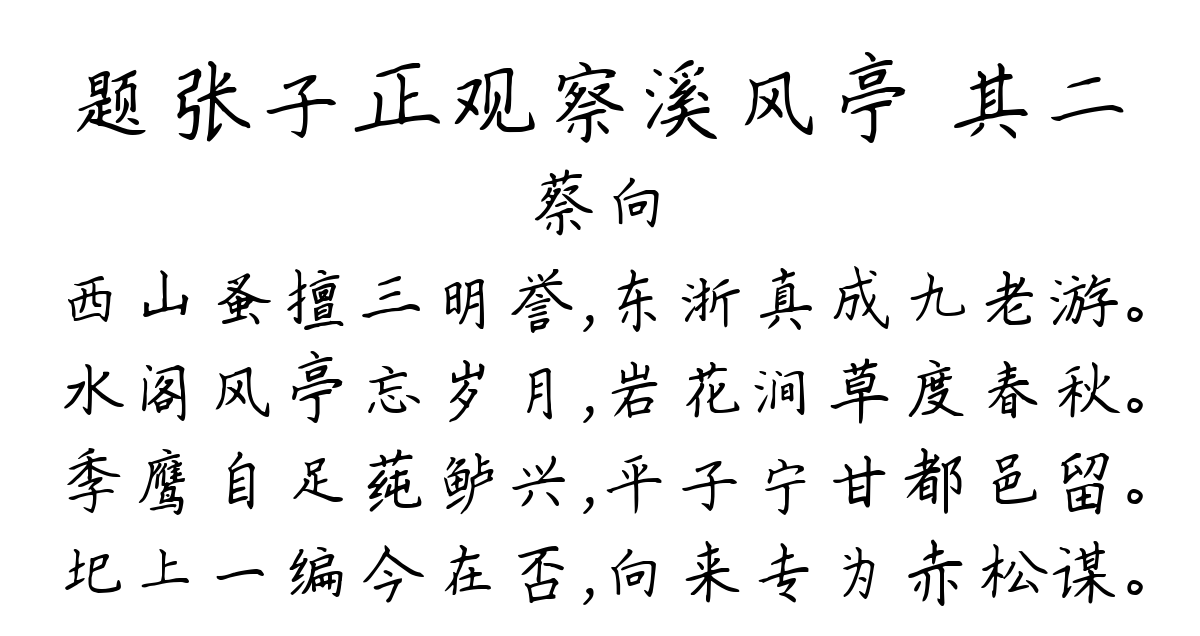 题张子正观察溪风亭 其二
蔡向
西山蚤擅三明誉,东浙真成九老游。
水阁风亭忘岁月,岩花涧草度春秋。
季鹰自足莼鲈兴,平子宁甘都邑留。
圯上一编今在否,向来专为赤松谋。